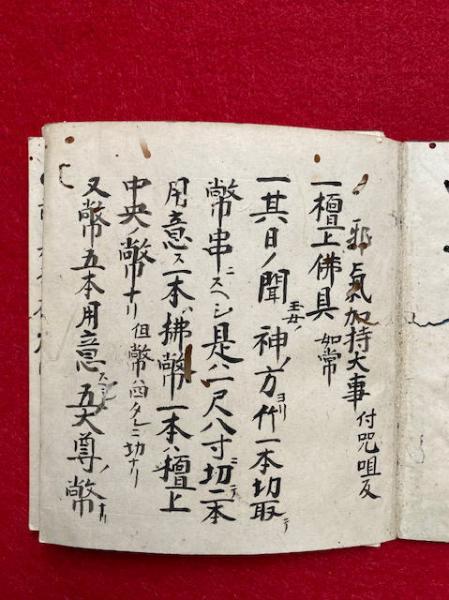 邪氣加持大事 付呪咀反
一壇上佛具 如常
一其日ノ聞神ノ方ヨリ竹一本切取テ
幣串ニスヘシ是ハ二尺八寸ニ切テ二本
用意ス一本ハ拂幣一本ハ壇上
中央ノ幣ナリ但幣ハ四タレニ切ナリ
又幣五本用意スヘシ五大尊ノ幣ナリ